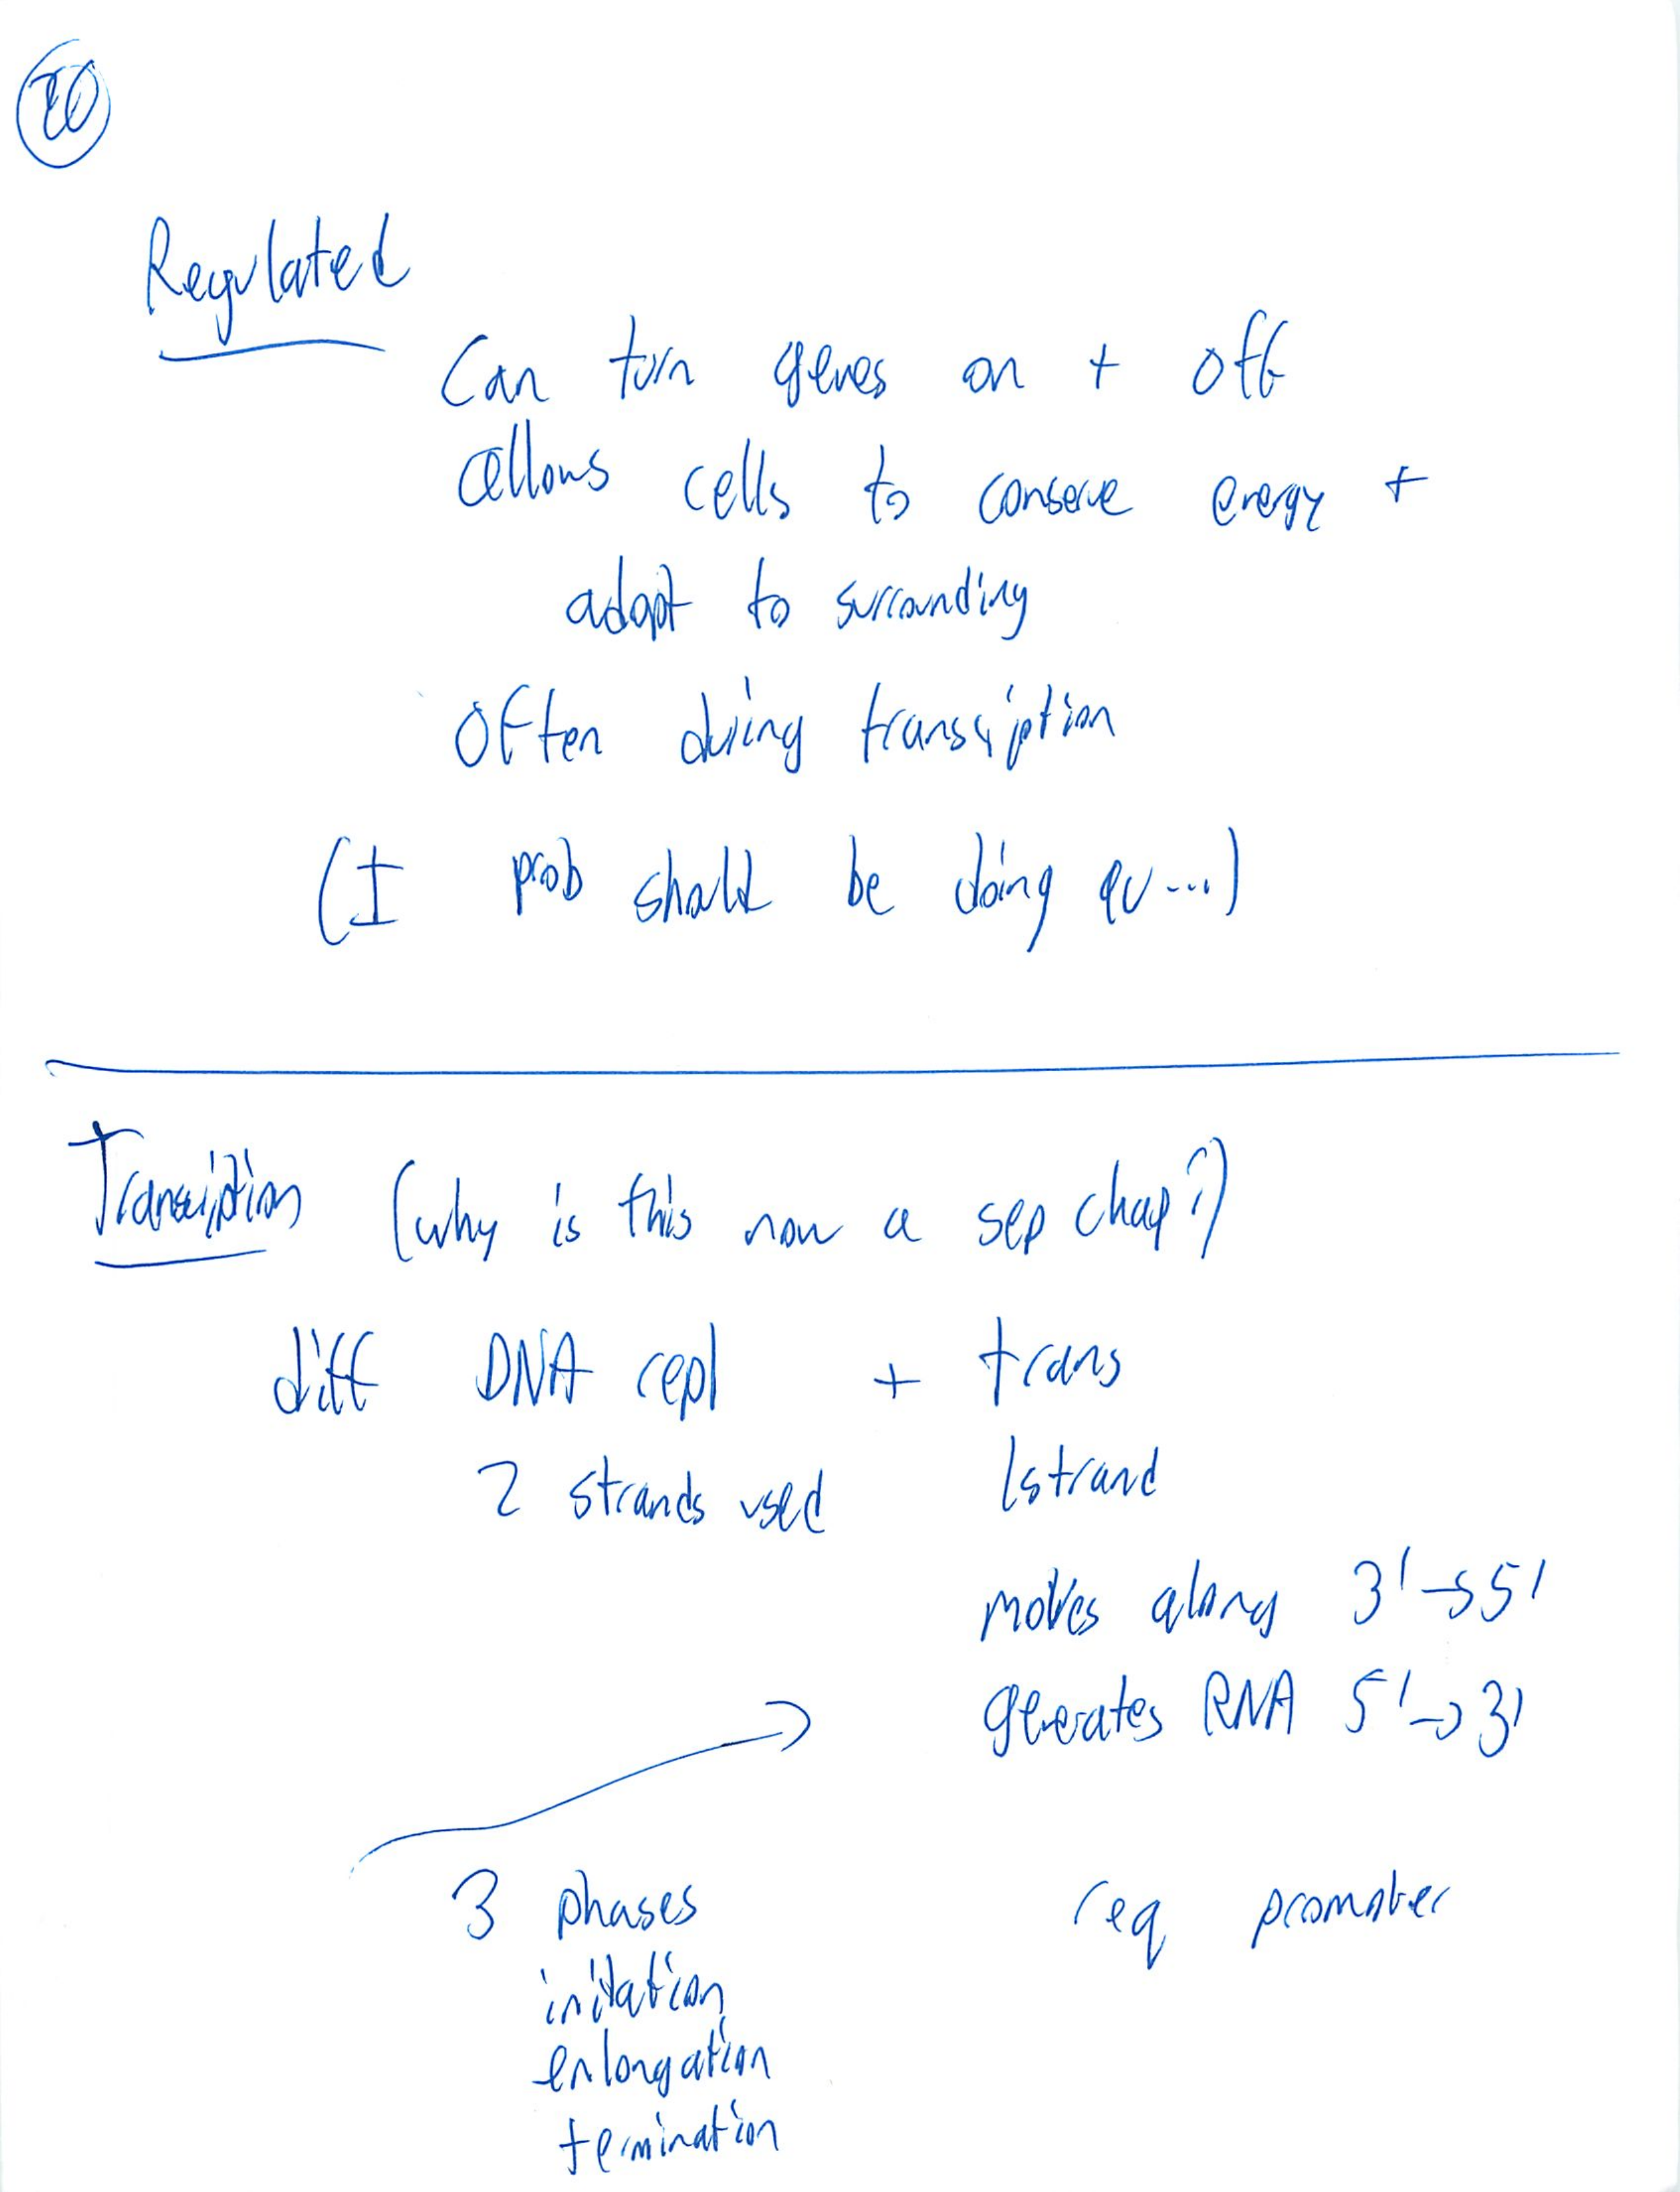 20
Regulated
Can turn genes on + off
allows cells to conserve energy +
adapt to surrounding
often during transcription
(I prob should be doing qu...)
Transcription (why is this now a sep chap?)
diff DNA repl + trans
2 strands used 1 strand
moves along 3'→5'
generates RNA 5'→3'
3 phases req promoter
initation
enlongation
termination